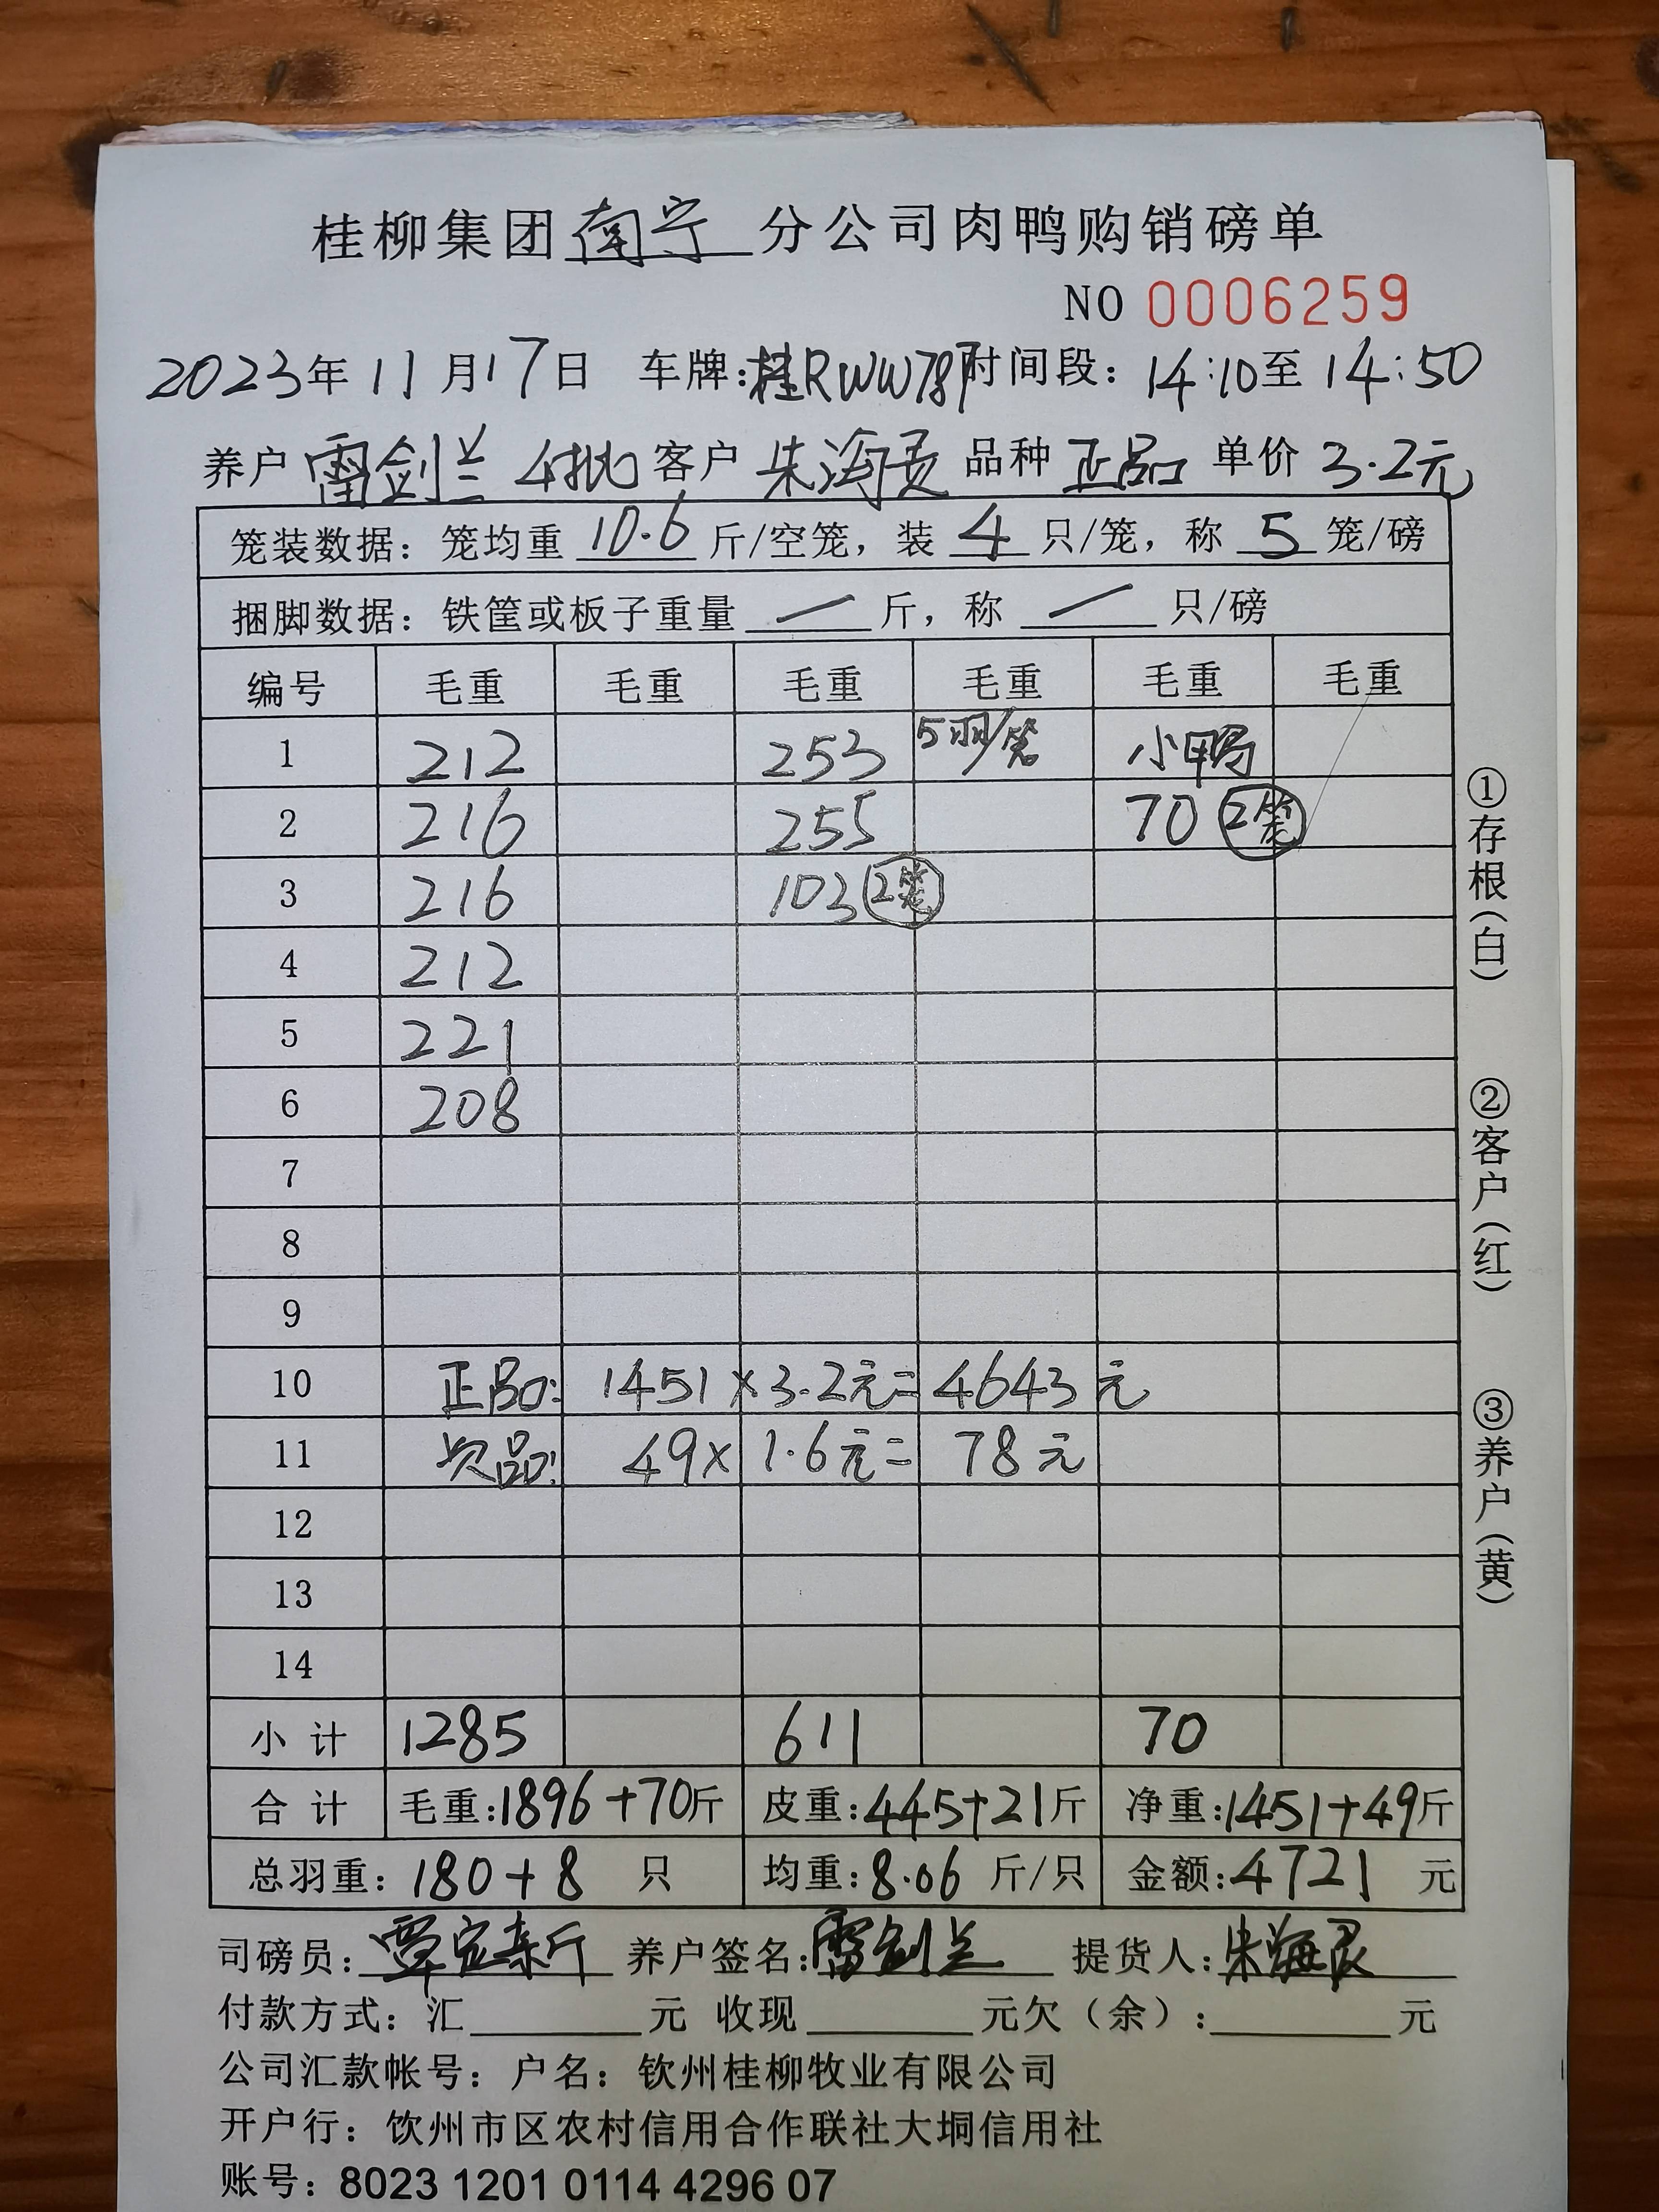 桂柳集团南宁分公司肉鸭购销磅单
NO 0006259
2023年11月17日 车牌:桂RWW787 时间段:14:10至14:50
养户 雷剑兰 4批 客户 朱海 品种 正品 单价 3.2元
笼装数据:笼均重 10.6 斤/空笼,装 4 只/笼,称 5 笼/磅
捆脚数据:铁筐或板子重量 — 斤,称 — 只/磅
编号 毛重 毛重 毛重 毛重 毛重 毛重
1 212 253 5羽/笼 小鸭
2 216 255 70 2笼
3 216 103 2笼
4 212
5 221
6 208
7
8
9
10 正品: 1451×3.2元=4643元
11 次品: 49×1.6元=78元
12
13
14
小计 1285 611 70
合计 毛重:1896+70斤 皮重:445+21斤 净重:1451+49斤
总羽重:180+8 只 均重:8.06 斤/只 金额:4721 元
司磅员: 养户签名:雷剑兰 提货人:朱海
付款方式:汇 元 收现 元欠(余): 元
公司汇款帐号:户名:钦州桂柳牧业有限公司
开户行:饮州市区农村信用合作联社大垌信用社
账号:8023 1201 0114 4296 07
①存根(白)
②客户(红)
③养户(黄)